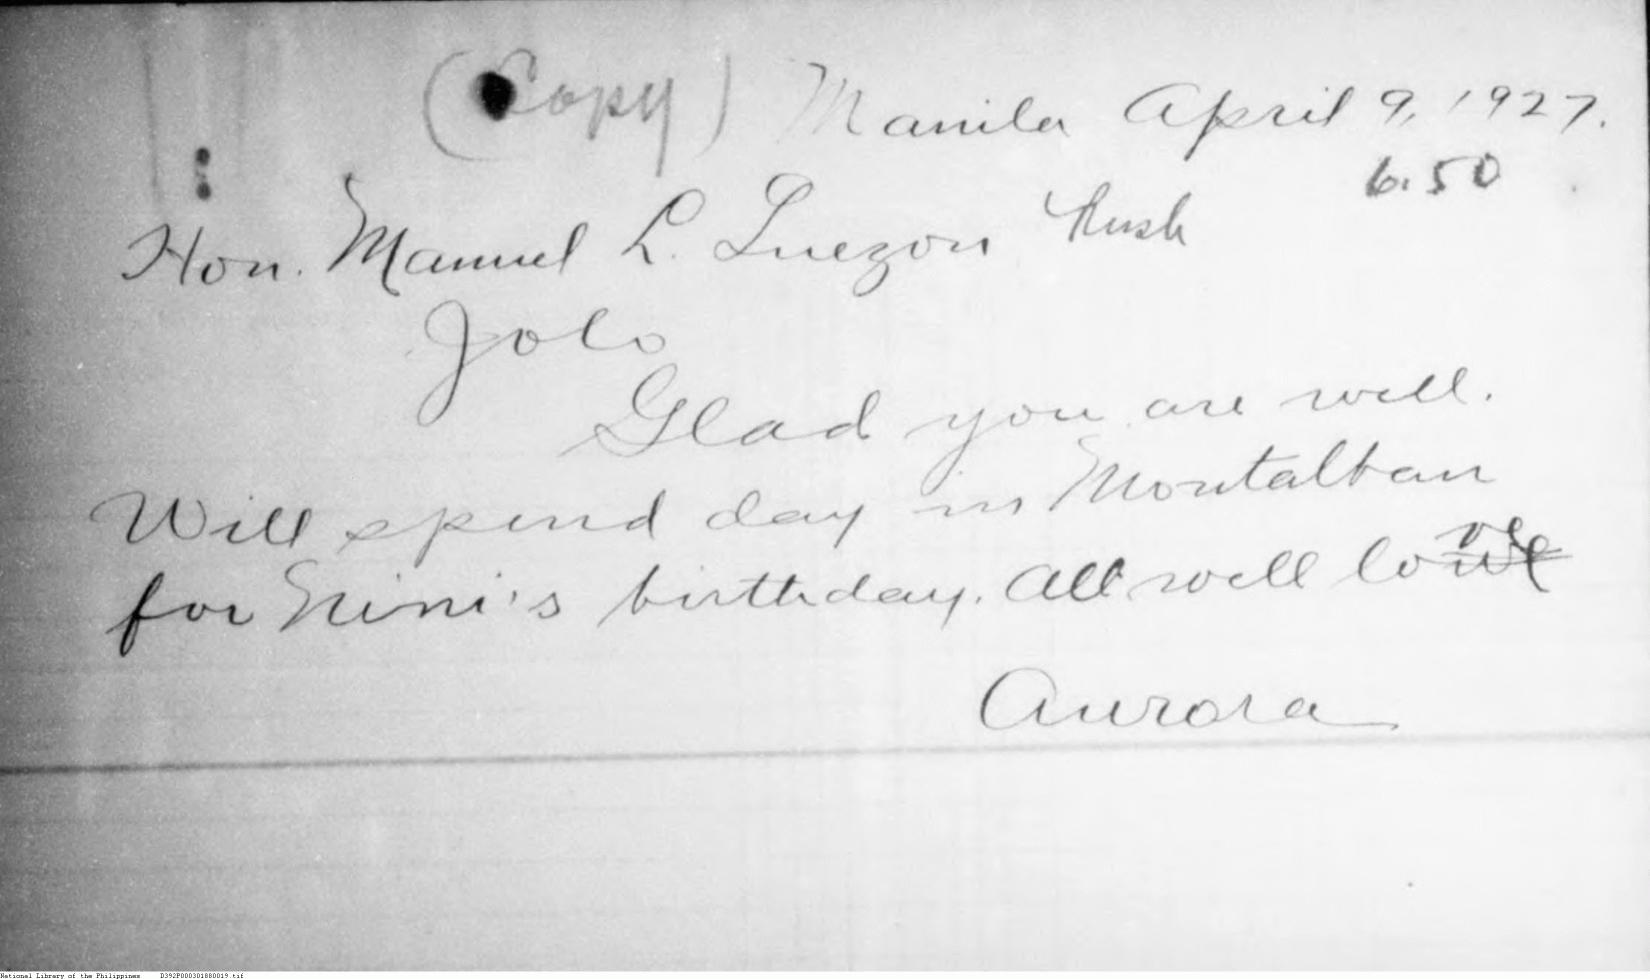 (Copy) Manila April 9, 1927.
6.50
Hon. Manuel L. Quezon Rush
Jolo
Glad you are well.
Will spend day in Montalban
for Nini's birthday. All well love
Aurora
National Library of the Philippines D392P000301880019.tif